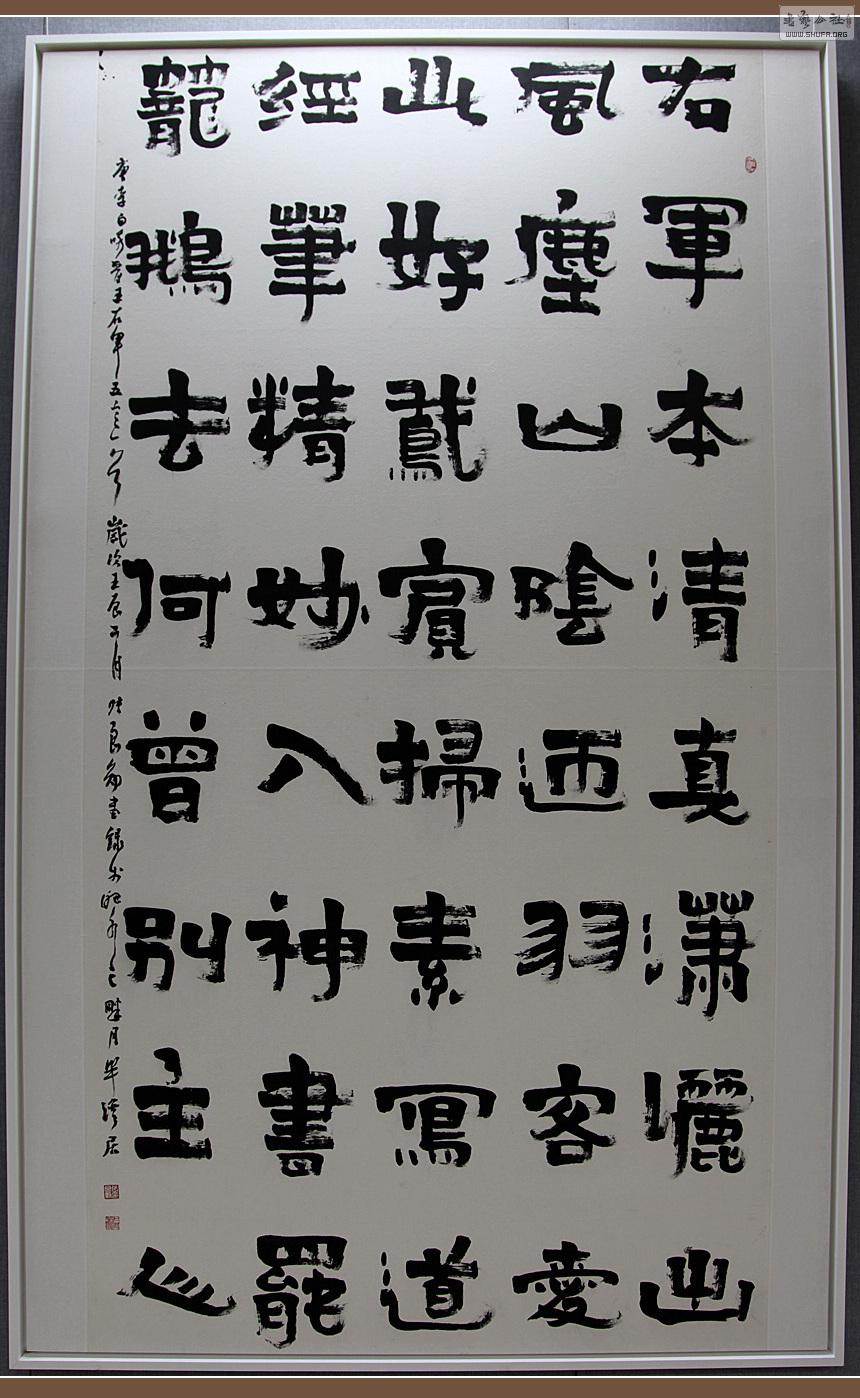 右軍本清真瀟灑出
風塵山陰遇羽客愛
此好鵞賓掃素寫道
經筆精妙入神書罷
籠鵝去何曾別主人
唐李白咏晉王右軍五言一首 歲次壬辰
書藝公社
WWW.SHUFA.ORG